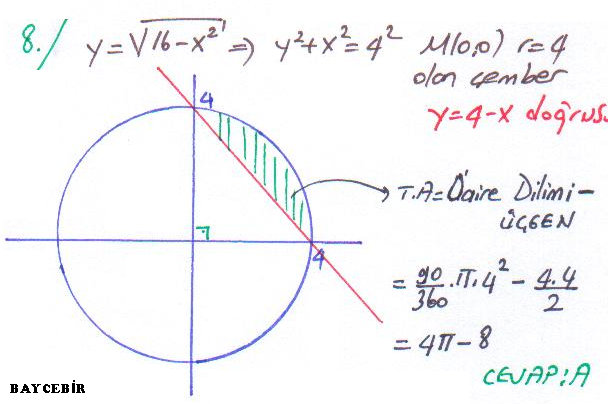 8./ y=√16-x² ⇒ y²+x²=4² M(0,0) r=4
olan çember
y=4-x doğrusu
4
4
T.A=Daire Dilimi-
ÜÇGEN
= 90/360 .π.4² - 4.4/2
= 4π-8
CEVAP:A
BAYCEBİR